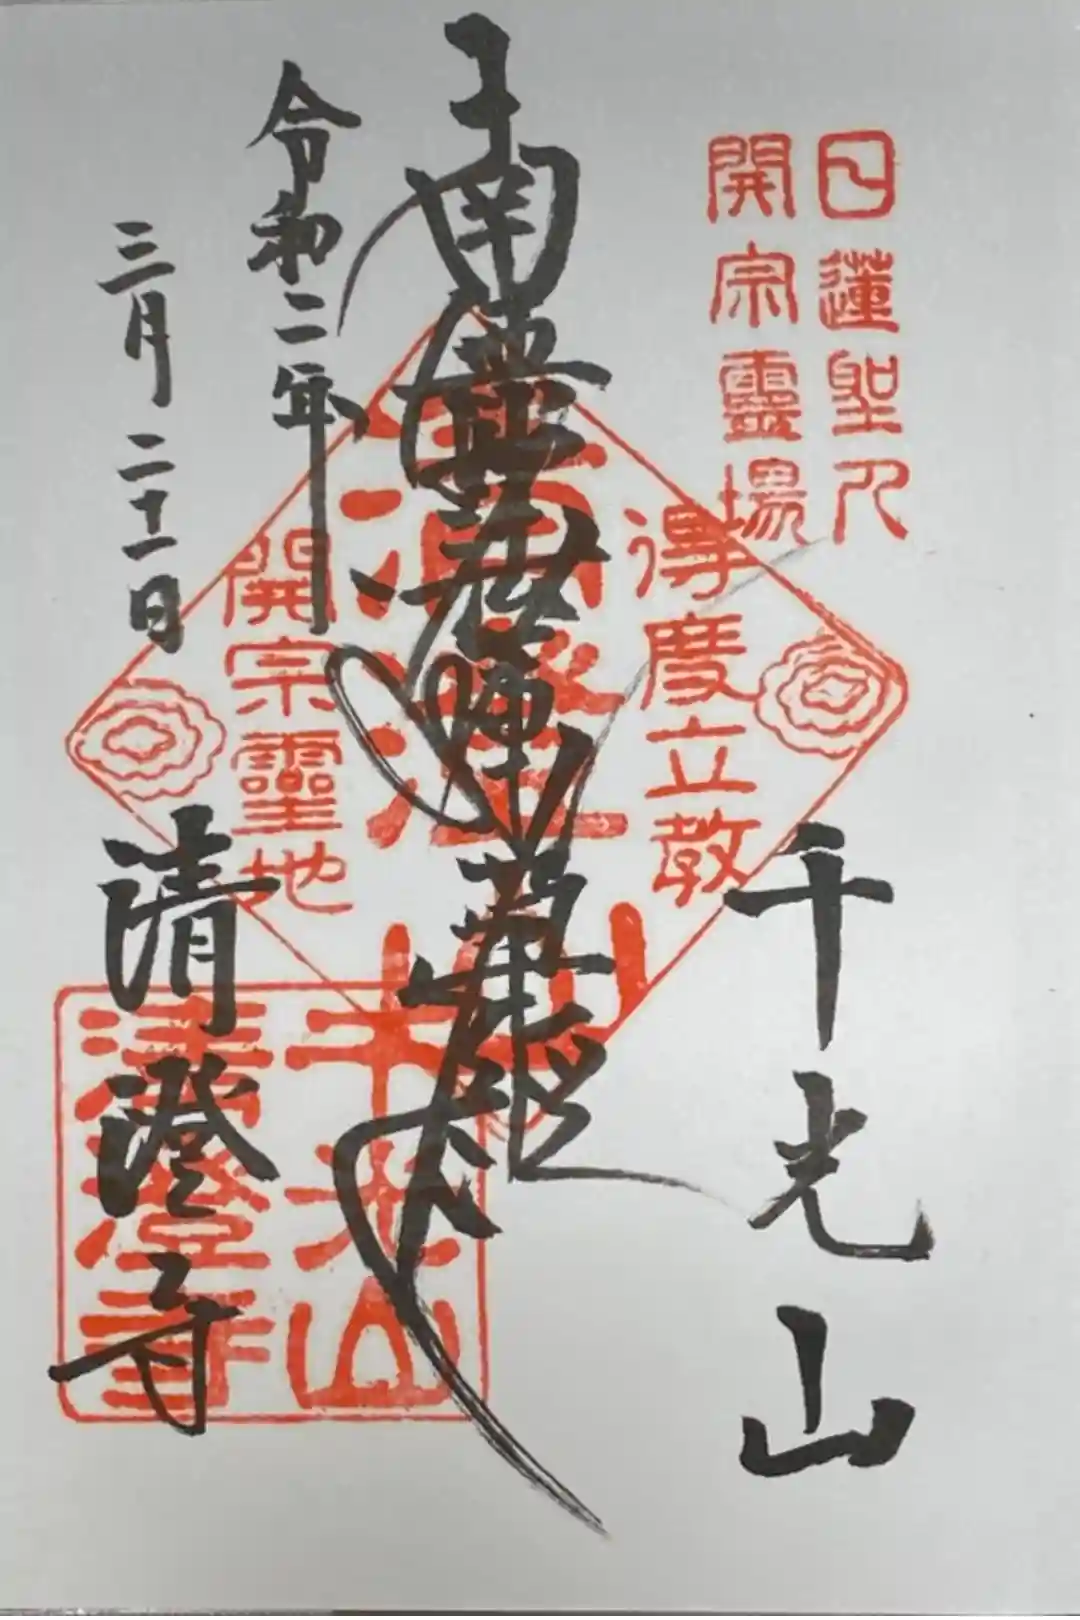 日蓮聖人
開宗靈場
千光山
得度立教
南無妙法蓮華経
清澄山
開宗靈地
千光山
清澄寺
令和二年
三月二十一日
清澄寺